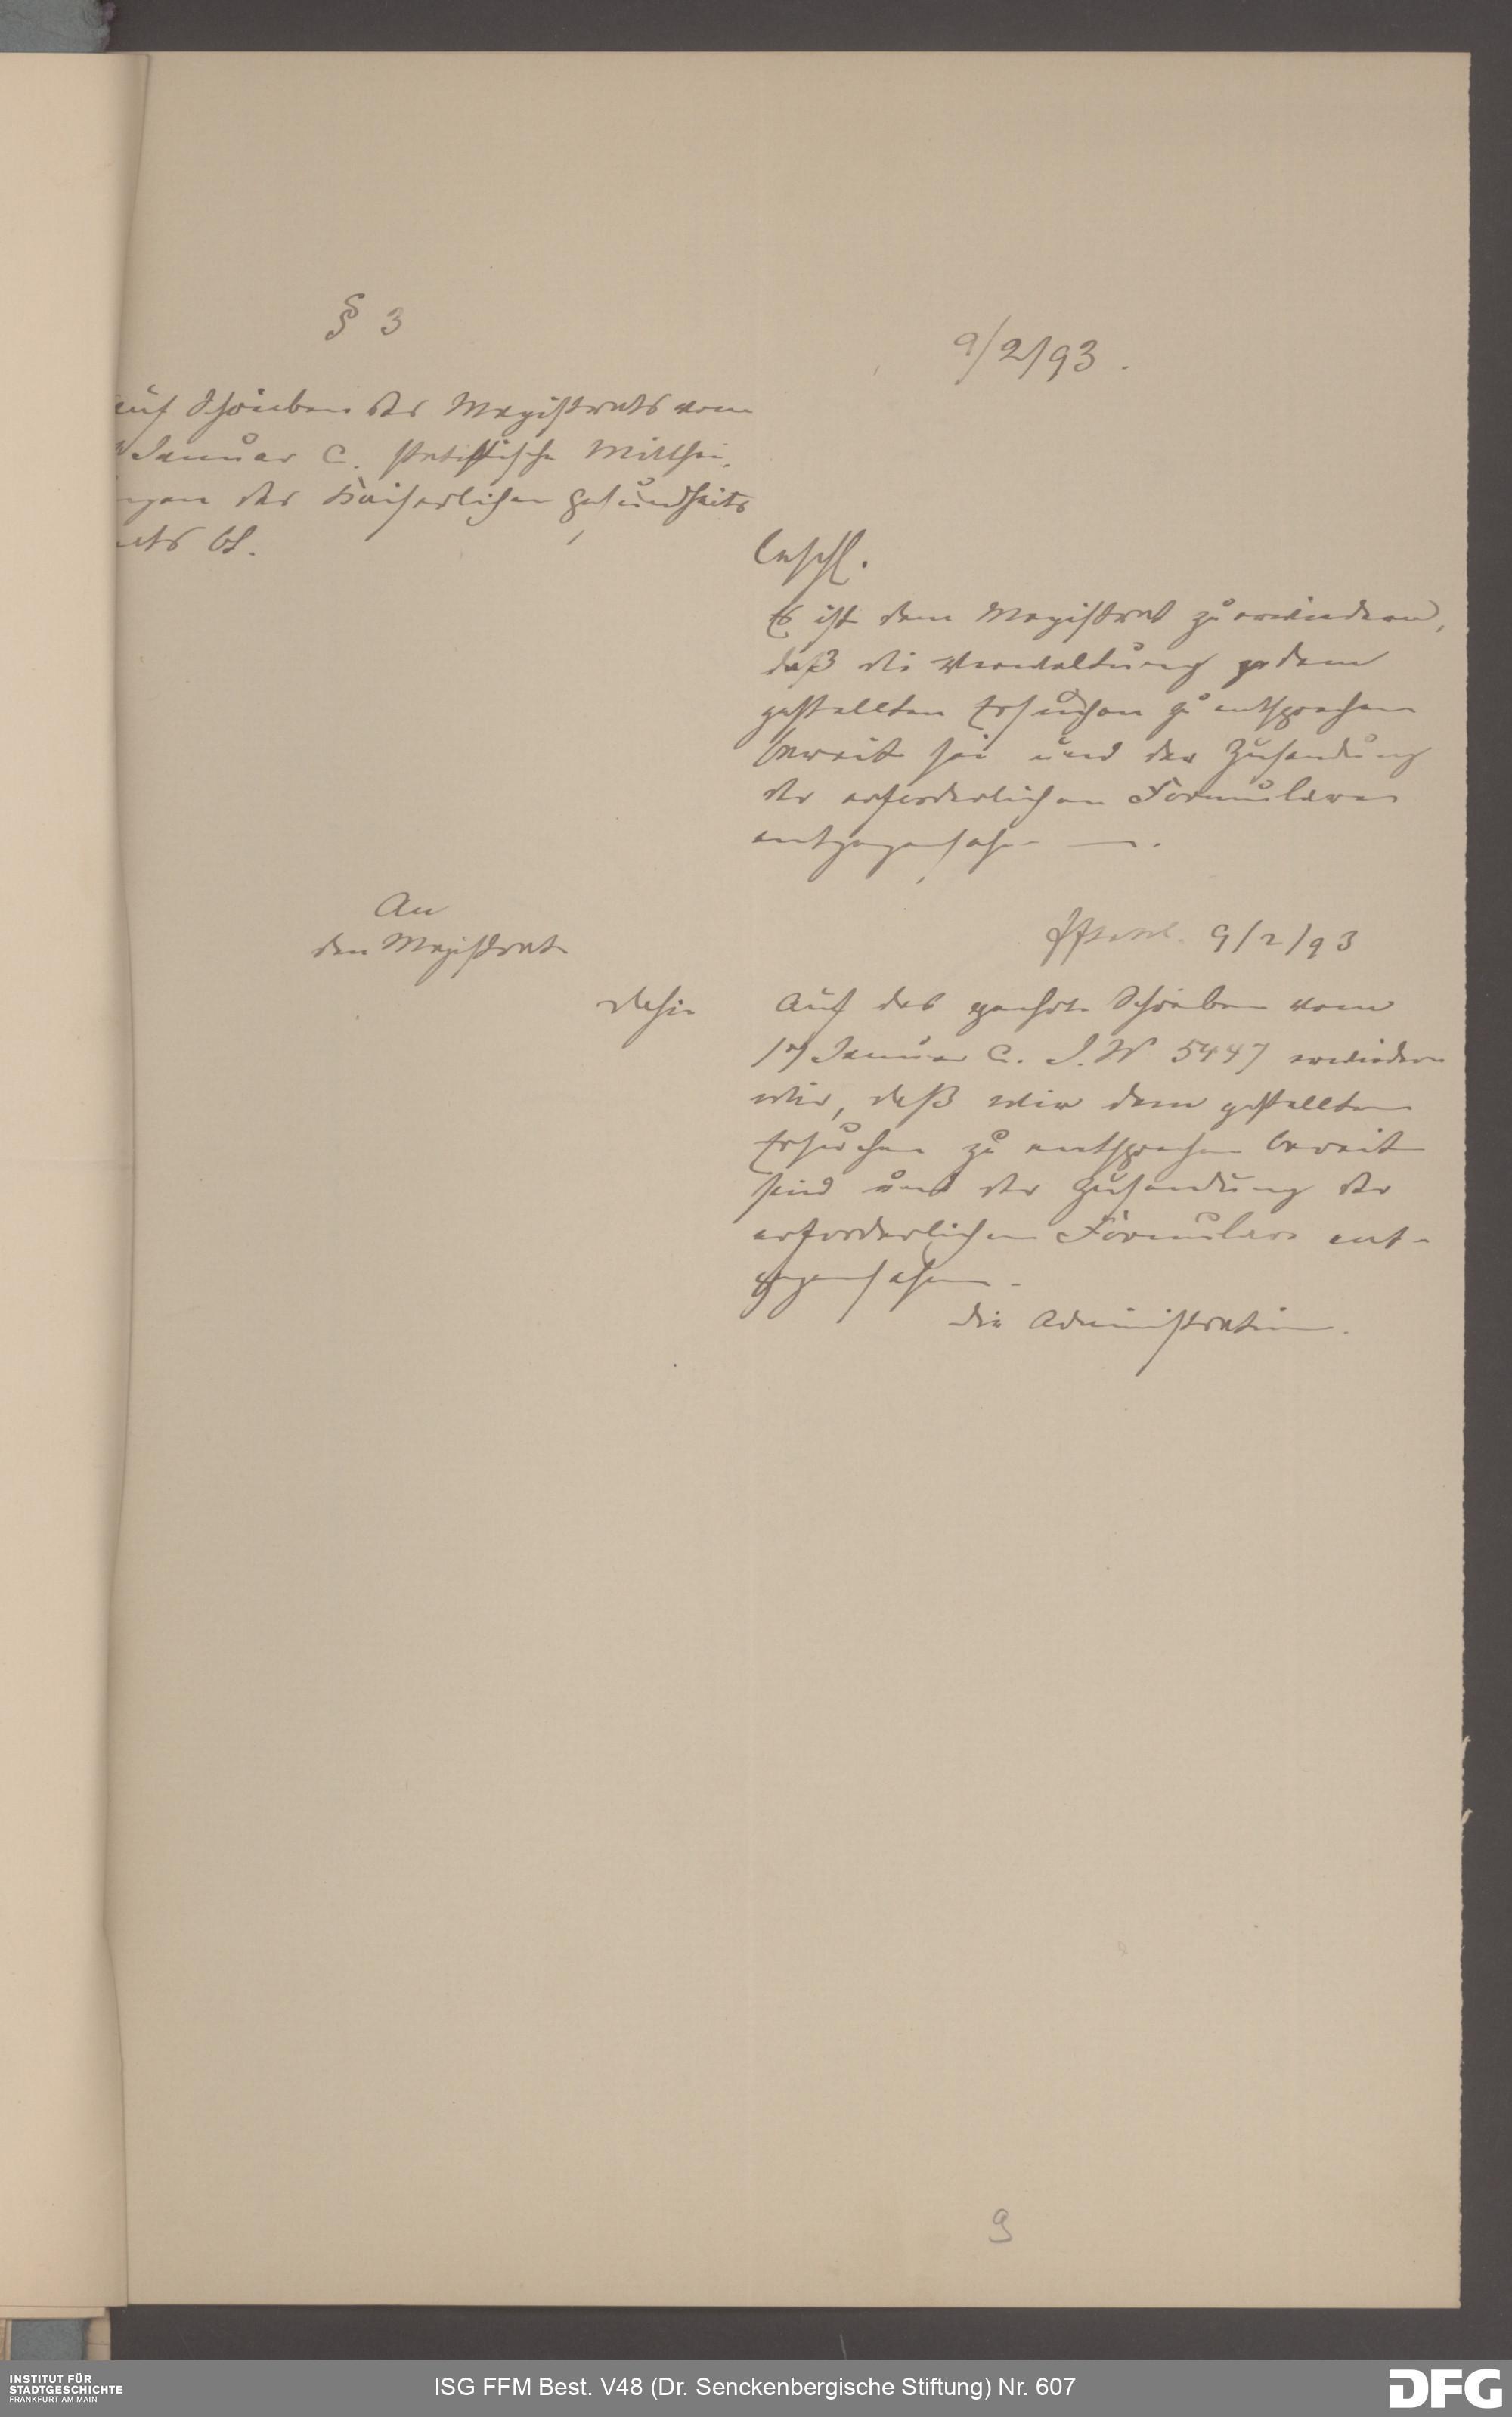 § 3
9/2/93.
auf Schreiben des Magistrats vom
Januar c. statistische Mitthei,
ngen des Kaiserlichen Gesundheits
mts btf.
Beschl.
Es ist dem Magistrat zu erwiedern,
daß die Verwaltung dem
gestellten Ersuchen zu entsprechen
bereit sei und der Zusendung
der erforderlichen Formulare
entgegensehe.
An
den Magistrat
dahier
9/2/93
Auf das geehrte Schreiben vom
17 Januar c. J. N 5447 erwiedern
wir, daß wir dem gestellten
Ersuchen zu entsprechen bereit
sind und der Zusendung der
erforderlichen Formulare ent-
gegensehen.
Die Administration.
9
INSTITUT FÜR
STADTGESCHICHTE
FRANKFURT AM MAIN
ISG FFM Best. V48 (Dr. Senckenbergische Stiftung) Nr. 607
DFG